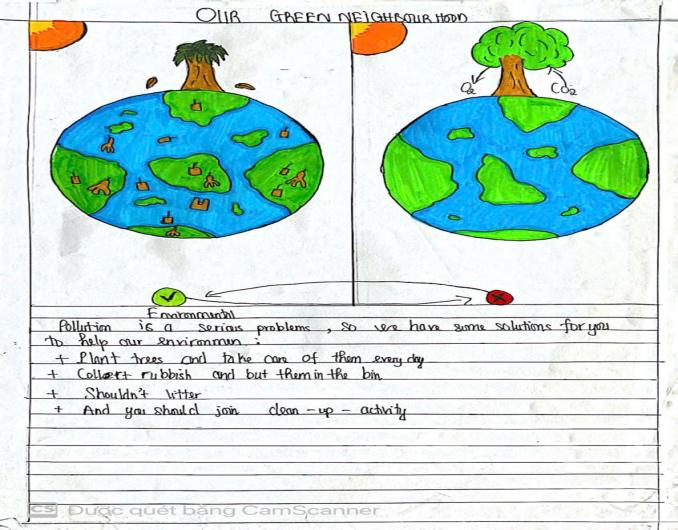 OUR GREEN NEIGHBOURHOOD
O2 CO2
Environmental
Pollution is a serious problems, so we have some solutions for you
to help our environmen :
+ Plant trees and take care of them every day
+ Collect rubbish and but them in the bin
+ Shouldn't litter
+ And you should join clean-up-activity
CS Được quét bằng CamScanner